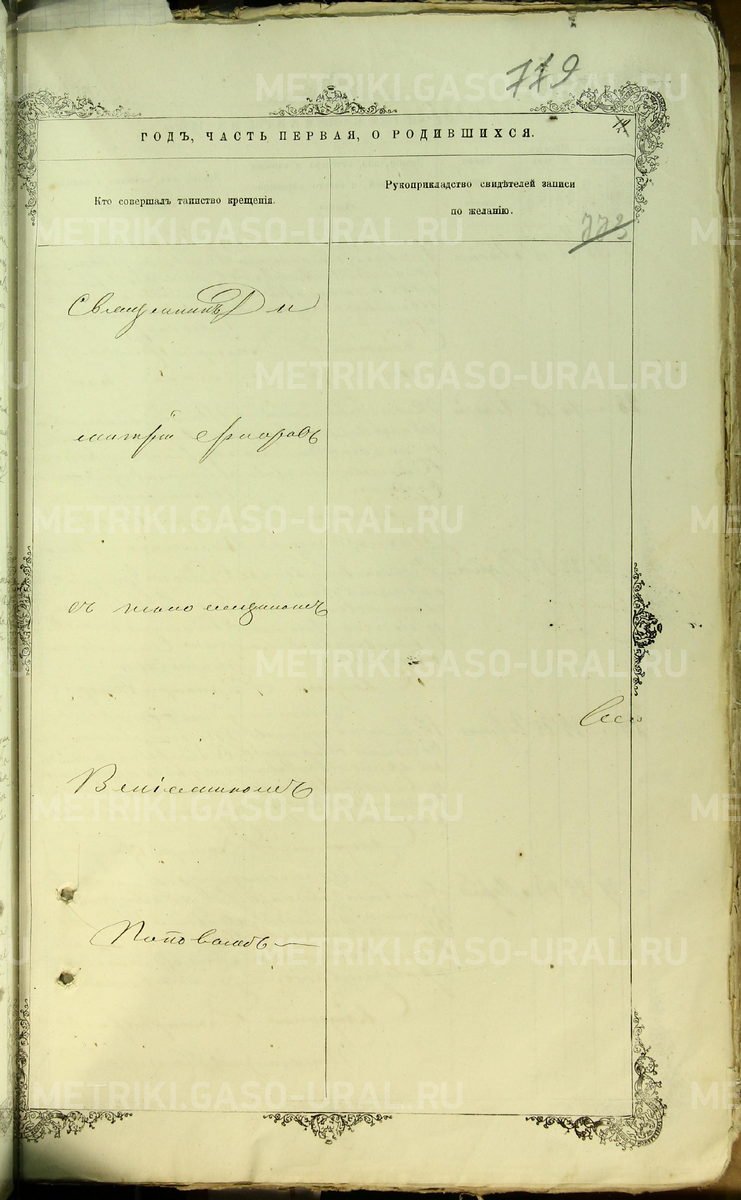 779
ГОДЪ, ЧАСТЬ ПЕРВАЯ, О РОДИВШИХСЯ.
Кто совершалъ таинство крещенія.
Рукоприкладство свидѣтелей записи
по желанію.
773
Священникъ Ди
митрій
съ
Веніаминомъ
Поповымъ
METRIKI.GASO-URAL.RU